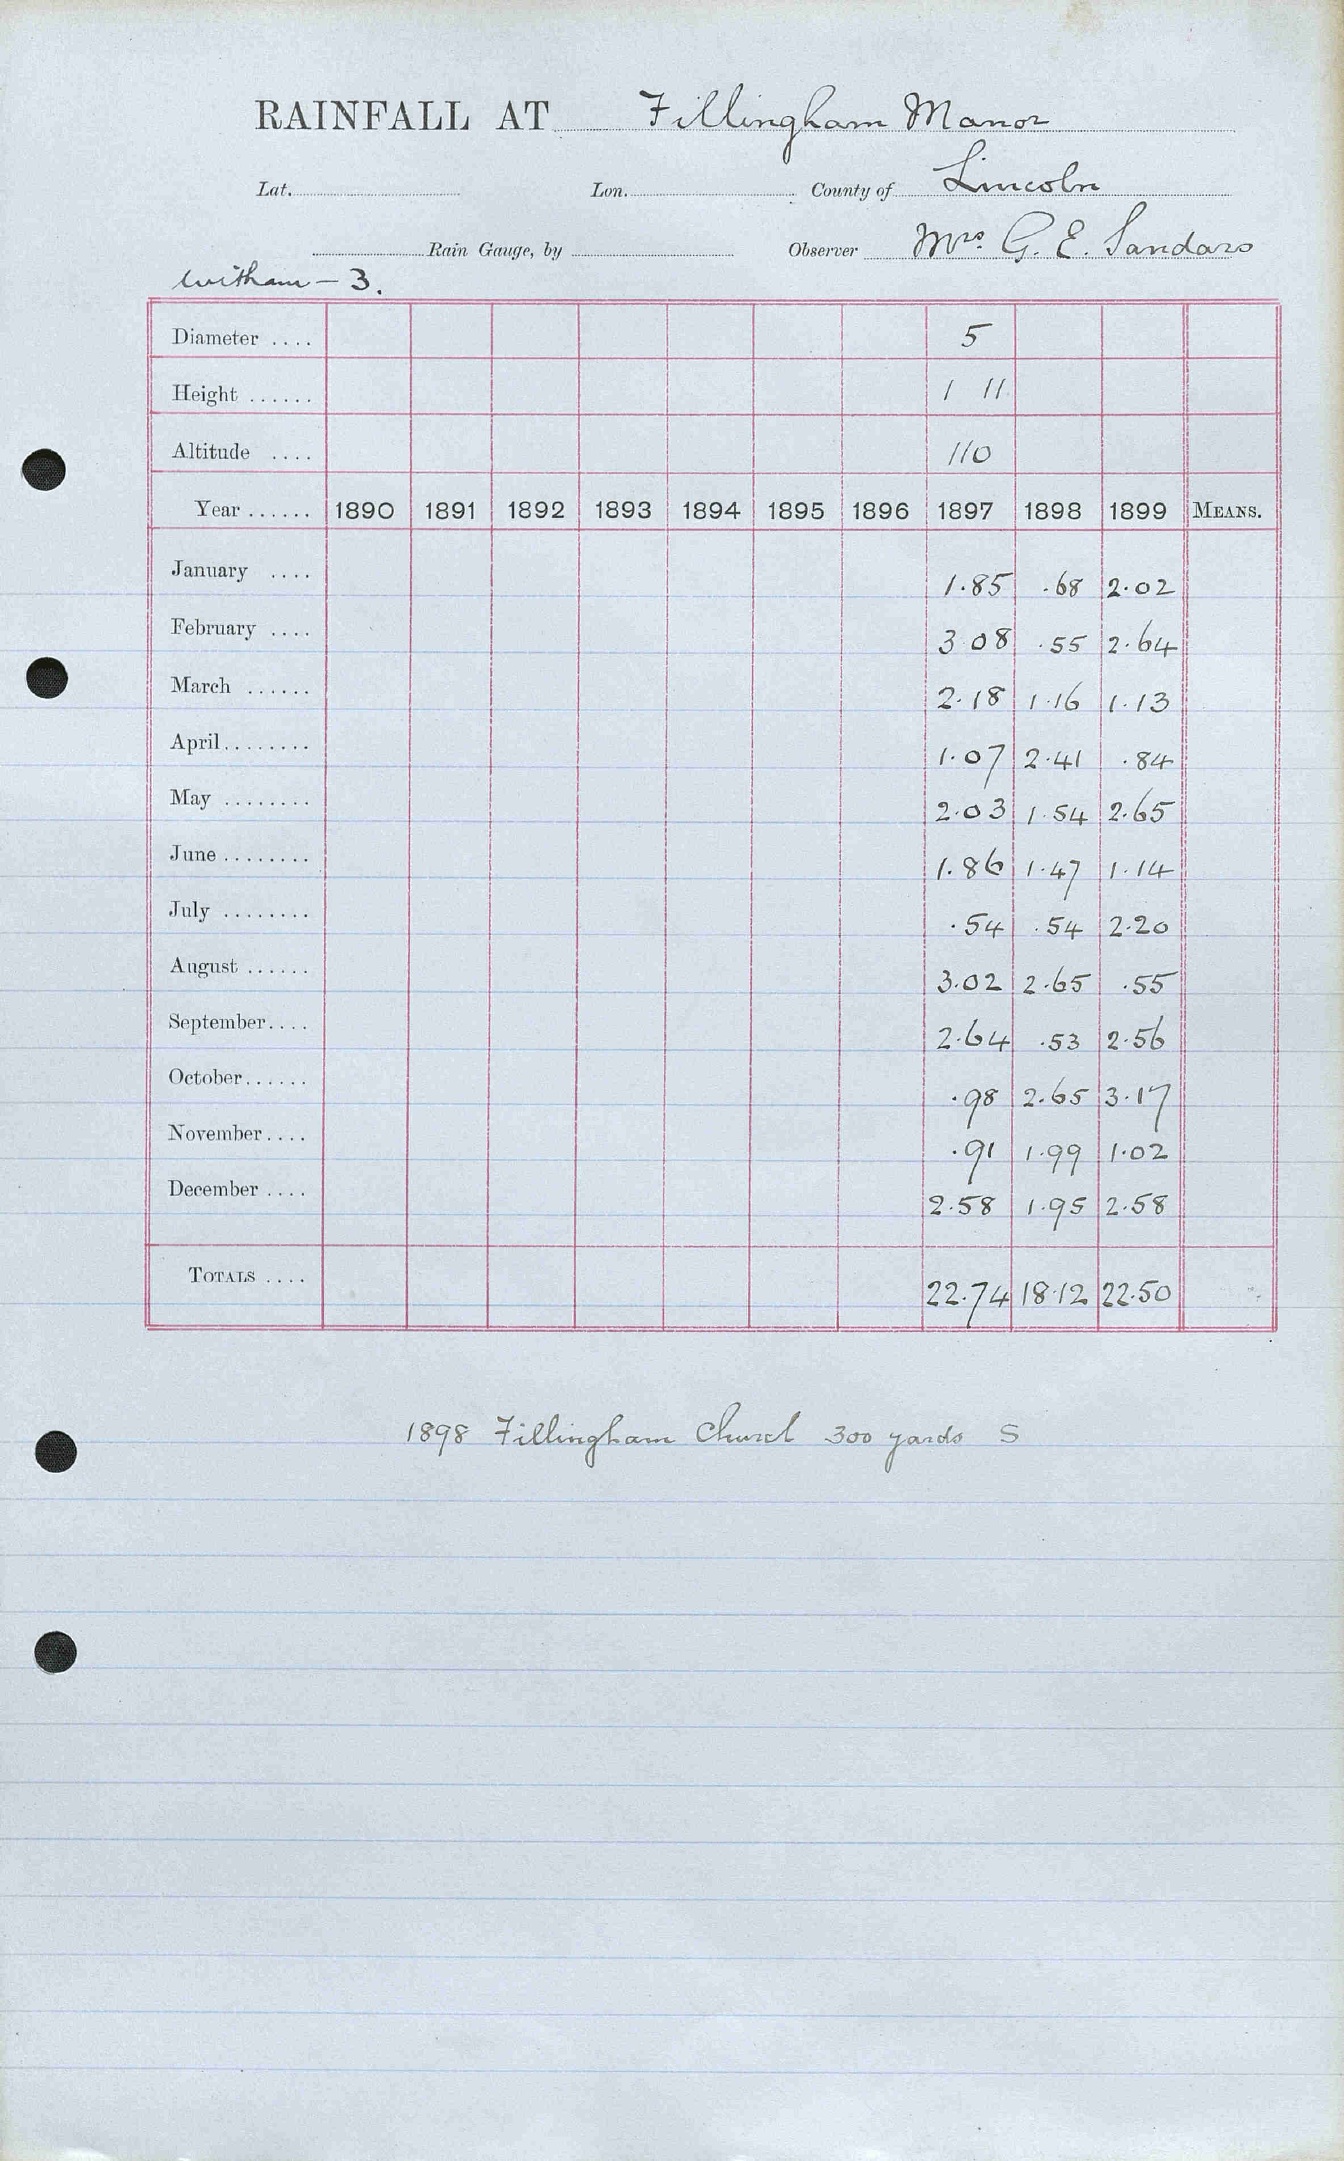 RAINFALL AT Fillingham Manor
Lat. Lon. County of Lincoln
Rain Gauge, by Observer Mrs. G. E. Sandars
Witham - 3.
Diameter .... 5
Height ...... 1 11
Altitude .... 110
Year ...... 1890 1891 1892 1893 1894 1895 1896 1897 1898 1899 MEANS.
January .... 1.85 .68 2.02
February .... 3 08 .55 2.64
March ...... 2.18 1.16 1.13
April........ 1.07 2.41 .84
May ........ 2.03 1.54 2.65
June ........ 1.86 1.47 1.14
July ........ .54 .54 2.20
August ...... 3.02 2.65 .55
September.... 2.64 .53 2.56
October...... .98 2.65 3.17
November.... .91 1.99 1.02
December .... 2.58 1.95 2.58
TOTALS .... 22.74 18.12 22.50
1898 Fillingham Church 300 yards S